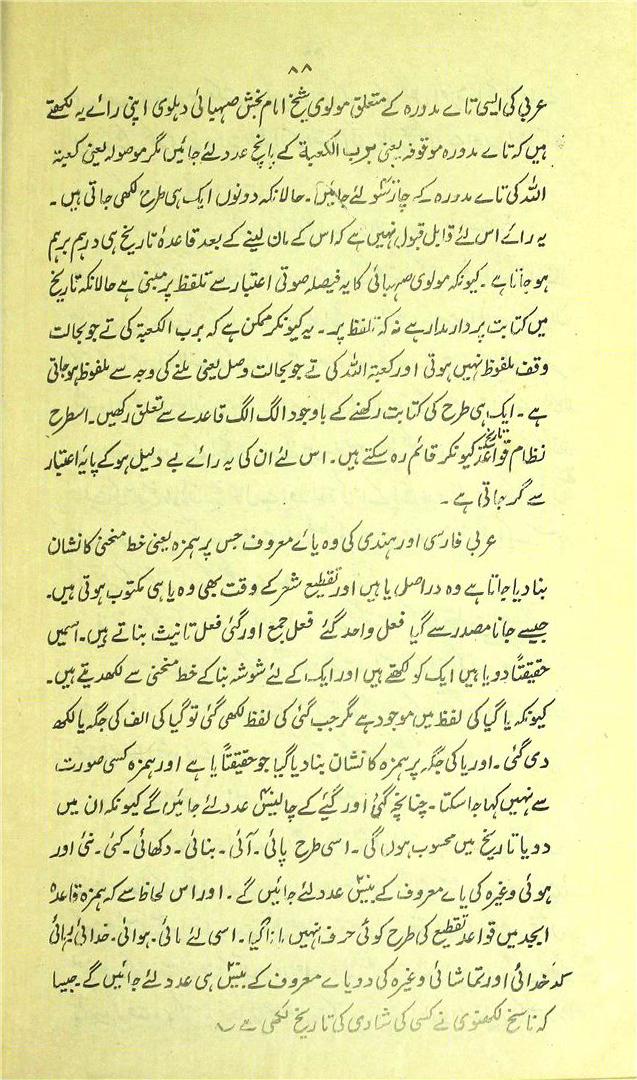 ۸۸
عربی کی ایسی تاے مدورہ کے متعلق مولوی شیخ امام بخش صہبائی دہلوی اپنی راے یہ لکھتے
ہیں کہ تاے مدورہ موقوفہ یعنی برب الکعبۃ کے پانچ عدد لئے جائیں مگر موصولہ یعنی کعبۃ
اللہ کی تاے مدورہ کے چار سَو لئے جائیں۔ حالانکہ دونوں ایک ہی طرح لکھی جاتی ہیں۔
یہ راے اس لئے قابل قبول نہیں ہے کہ اس کے مان لینے کے بعد قاعدۂ تاریخ ہی درہم برہم
ہو جاتا ہے۔ کیونکہ مولوی صہبائی کا یہ فیصلہ صوتی اعتبار سے تلفظ پر مبنی ہے حالانکہ تاریخ
میں کتابت پر دارمدار ہے نہ کہ تلفظ پر۔ یہ کیونکر ممکن ہے کہ برب الکعبۃ کی تے جو بحالت
وقف ملفوظ نہیں ہوتی اور کعبۃ اللہ کی تے جو بحالت وصل یعنی ملنے کی وجہ سے ملفوظ ہو جاتی
ہے۔ ایک ہی طرح کی کتابت رکھنے کے باوجود الگ الگ قاعدے سے تعلق رکھیں۔ اسطرح
نظام قواعد تاریخ کیونکر قائم رہ سکتے ہیں۔ اس لئے ان کی یہ راے بے دلیل ہو کے پایۂ اعتبار
سے گر جاتی ہے۔
عربی فارسی اور ہندی کی وہ یائے معروف جس پر ہمزہ یعنی خط منحنی کا نشان
بنا دیا جاتا ہے وہ دراصل یا ہیں اور تقطیع شعر کے وقت بھی وہ یا ہی مکتوب ہوتی ہیں۔
جیسے جانا مصدر سے گیا فعل واحد گئے فعل جمع اور گئی فعل تانیث بناتے ہیں۔ اسمیں
حقیقتاً دو یا ہیں ایک کو لکھتے ہیں اور ایک کے لئے شوشہ بنا کے خط منحنی سے لکھدیتے ہیں۔
کیونکہ یا گیا کی لفظ میں موجود ہے مگر جب گئی کی لفظ لکھی گئی تو گیا کی الف کی جگہ یا لکھ
دی گئی۔ اور یا کی جگہ پر ہمزہ کا نشان بنا دیا گیا جو حقیقتاً یا ہے اور ہمزہ کسی صورت
سے نہیں کہا جا سکتا۔ چنانچہ گئی اور گئے کے چالیس عدد لئے جائیں گے کیونکہ ان میں
دو یا تاریخ میں محسوب ہوں گی۔ اسی طرح پائی۔ آئی۔ بنائی۔ دکھائی۔ کئی۔ نئی اور
ہوئی وغیرہ کی یاے معروف کے بیس عدد لئے جائیں گے۔ اور اس لحاظ سے کہ ہمزہ قاعدہ
ابجد میں قواعد تقطیع کی طرح کوئی حرف نہیں مانا گیا۔ اسی لئے مائی۔ ہوائی۔ خدائی
کدخدائی اور تماشائی وغیرہ کی دو یاے معروف کے بیس ہی عدد لئے جائیں گے۔ جیسا
کہ ناسخ لکھنوی نے کسی کی شادی کی تاریخ لکھی ہے